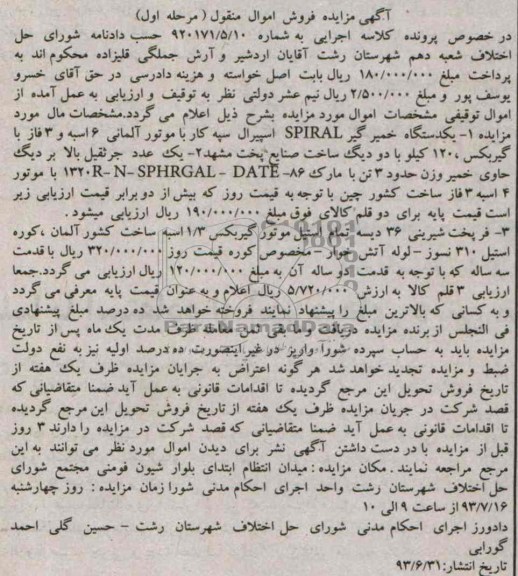 آگهی مزایده فروش اموال منقول (مرحله اول)
در خصوص پرونده کلاسه اجرایی به شماره ۹۲۰۱۷۱/۵/۱۰ حسب دادنامه شورای حل
اختلاف شعبه دهم شهرستان رشت آقایان اردشیر و آرش جملگی قلیزاده محکوم اند به
پرداخت مبلغ ۱۸۰/۰۰۰/۰۰۰ ریال بابت اصل خواسته و هزینه دادرسی در حق آقای خسرو
یوسف پور و مبلغ ۲/۵۰۰/۰۰۰ ریال نیم عشر دولتی نظر به توقیف و ارزیابی به عمل آمده از
اموال توقیفی مشخصات اموال مورد مزایده بشرح ذیل اعلام می گردد.مشخصات مال مورد
مزایده ۱- یکدستگاه خمیر گیر SPIRAL اسپیرال سپه کار با موتور آلمانی ۶ اسبه و ۳ فاز با
گیربکس ۱۲۰، کیلو با دو دیگ ساخت صنایع پخت مشهد۲- یک عدد جرثقیل بالا بر دیگ
حاوی خمیر وزن حدود ۳ تن با مارک ۱۳۲۰R-N-SPHRGAL - DATE -۸۶ با موتور
۴ اسبه ۳ فاز ساخت کشور چین با توجه به قیمت روز که بیش از دو برابر قیمت ارزیابی زیر
است قیمت پایه برای دو قلم کالای فوق مبلغ ۱۹۰/۰۰۰/۰۰۰ ریال ارزیابی میشود .
۳- فر پخت شیرینی ۳۶ دیسه تمام استیل موتور گیربکس ۱/۳ اسبه ساخت کشور آلمان ،کوره
استیل ۳۱۰ نسوز - لوله آتش خوار - مخصوص کوره قیمت روز ۳۲۰/۰۰۰/۰۰۰ ریال با قدمت
سه ساله که با توجه به قدمت دو ساله آن به مبلغ ۱۲۰/۰۰۰/۰۰۰ ریال ارزیابی می گردد.جمعا
ارزیابی ۳ قلم کالا به ارزش ۵/۷۲۰/۰۰۰ ریال اعلام و به عنوان قیمت پایه معرفی می گردد
و به کسانی که بالاترین مبلغ را پیشنهاد نمایند فروخته خواهد شد ده درصد مبلغ پیشنهادی
فی المجلس از برنده مزایده دریافت و مابقی ثمن معامله ظرف مدت یک ماه پس از تاریخ
مزایده باید به حساب سپرده شورا واریز در غیر اینصورت ده درصد اولیه نیز به نفع دولت
ضبط و مزایده تجدید خواهد شد هر گونه اعتراض به جرایان مزایده ظرف یک هفته از
تاریخ فروش تحویل این مرجع گردیده تا اقدامات قانونی به عمل آید ضمنا متقاضیانی که
قصد شرکت در جریان مزایده ظرف یک هفته از تاریخ فروش تحویل این مرجع گردیده
تا اقدامات قانونی به عمل آید ضمنا متقاضیانی که قصد شرکت در مزایده را دارند ۳ روز
قبل از مزایده با در دست داشتن آگهی نشر برای دیدن اموال مورد نظر می توانند به این
مرجع مراجعه نمایند . مکان مزایده : میدان انتظام ابتدای بلوار شیون فومنی مجتمع شورای
حل اختلاف شهرستان رشت واحد اجرای احکام مدنی شورا زمان مزایده : روز چهارشنبه
۹۳/۷/۱۶ از ساعت ۹ الی ۱۰
دادورز اجرای احکام مدنی شورای حل اختلاف شهرستان رشت - حسین گلی احمد
گورابی
تاریخ انتشار:۹۳/۶/۳۱